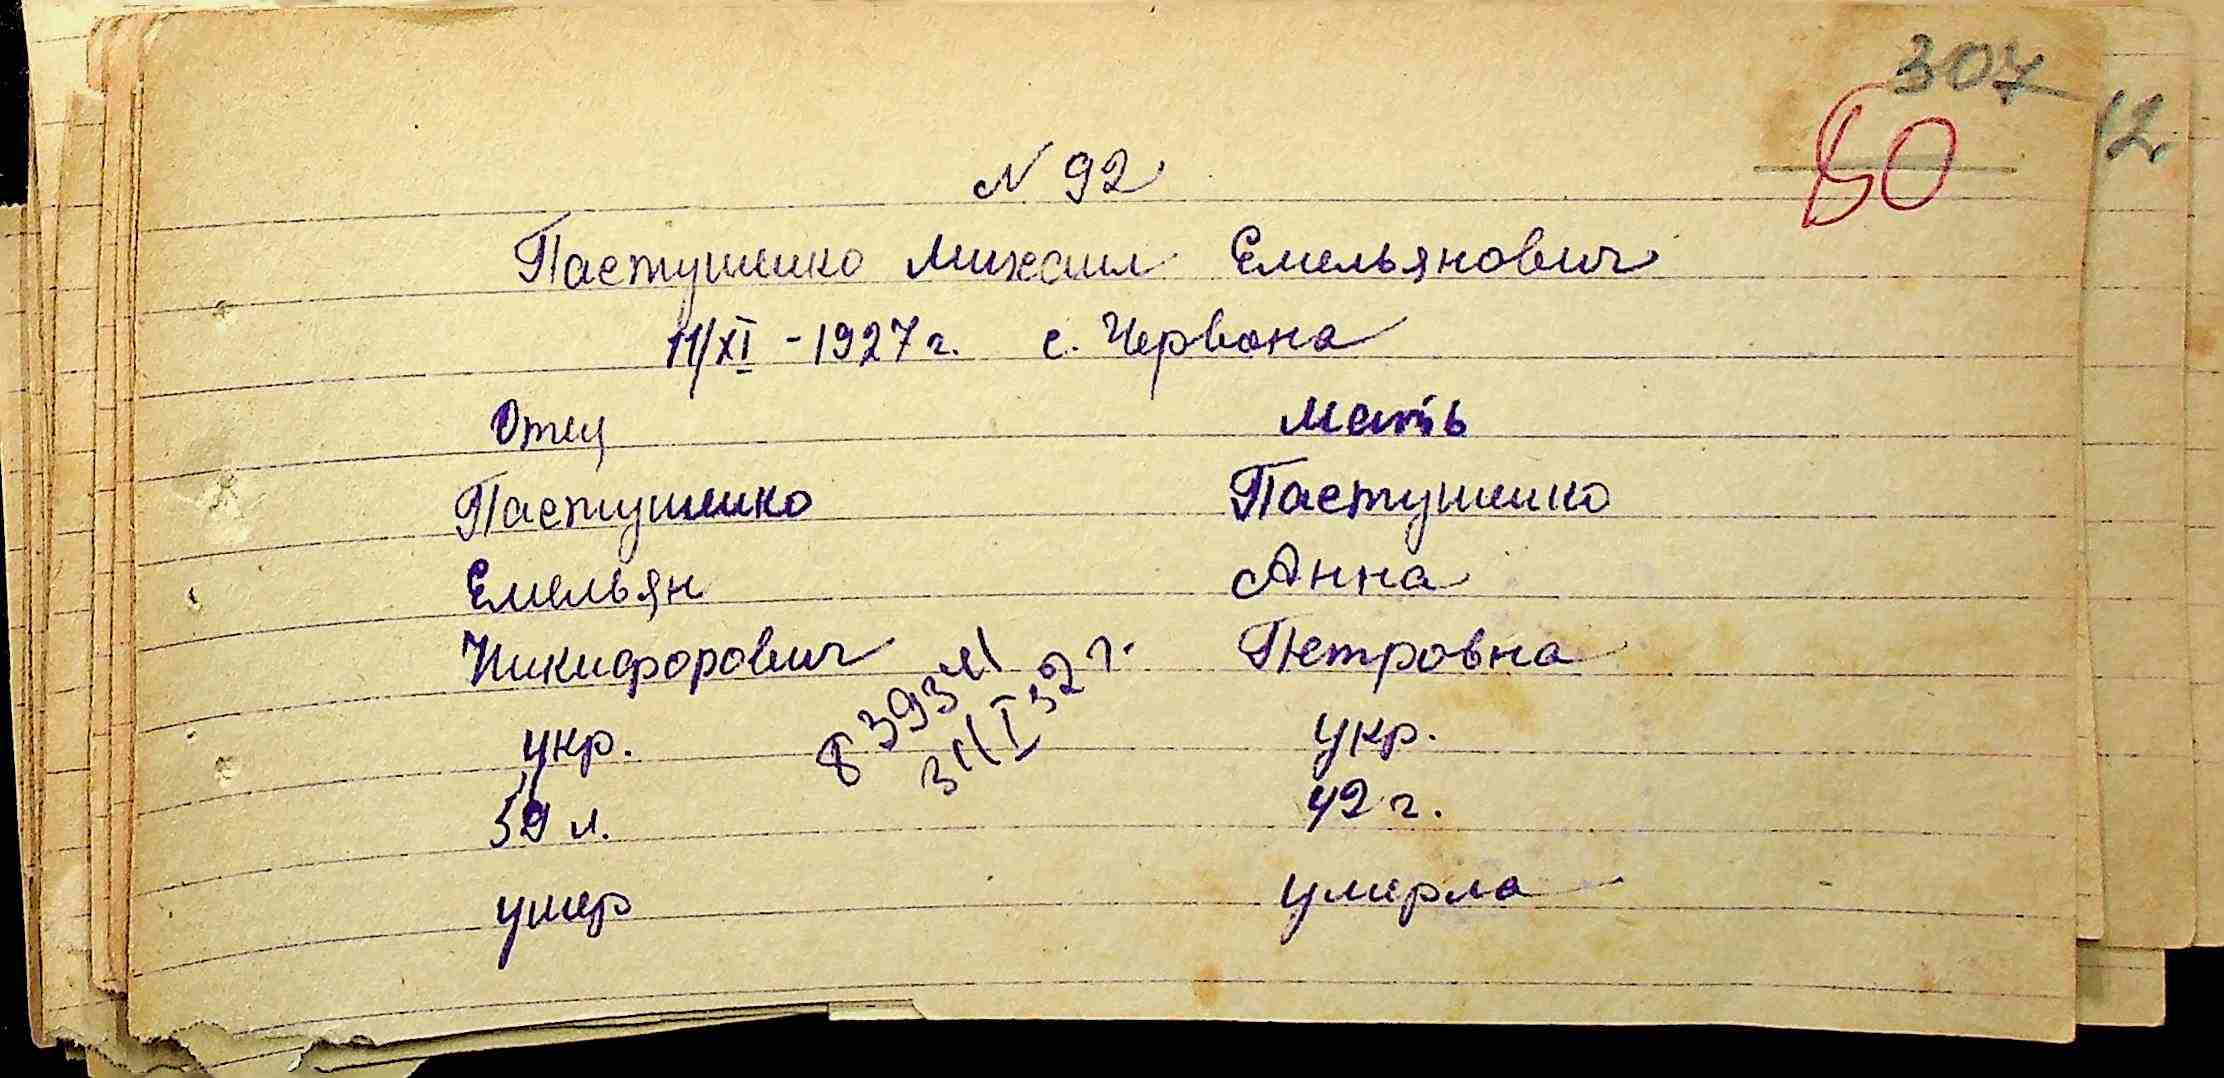 307
12
50
N 92
Пастушенко Михаил Емельянович
11/XI - 1927 г. с. Червона
Отец Мать
Пастушенко Пастушенко
Емельян Анна
Никифорович Петровна
укр. укр.
59 л. 42 г.
умер умерла